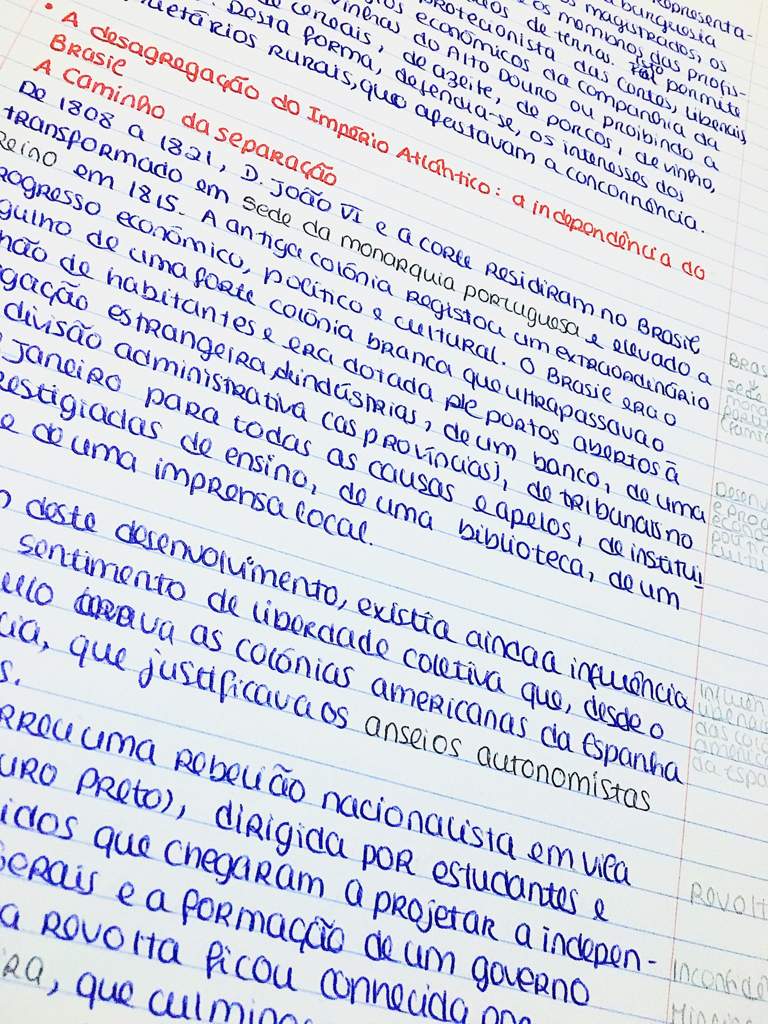 representa-
burguesia
magistrados, os
os membros das profis-
dos de terras. Isto permite
protecionista das cortes, liberais
os económicos da companhia da
vinhas do Alto Douro ou proibindo a
de cereais, de azeite, de porcos, de vinho,
Desta forma, defendia-se, os interesses dos
proprietários rurais, que afastavam a concorrência.
• A desagregação do Império Atlântico: a independência do
Brasil
A caminho da separação
De 1808 a 1821, D. João VI e a corte residiram no Brasil
transformado em sede da monarquia portuguesa e elevado a
Reino em 1815. A antiga colónia registou um extraordinário
progresso económico, político e cultural. O Brasil era o
de uma forte colónia branca que ultrapassava o
de habitantes e era dotada de portos abertos à
gação estrangeira, de indústrias, de um banco, de uma
divisão administrativa (as províncias), de tribunais no
Janeiro para todas as causas e apelos, de institui-
prestigiadas de ensino, de uma biblioteca, de um
e de uma imprensa local.
deste desenvolvimento, existia ainda a influência
sentimento de liberdade coletiva que, desde o
as colónias americanas da Espanha
que justificava os anseios autonomistas
s.
uma rebelião nacionalista em Vila
Ouro Preto), dirigida por estudantes e
que chegaram a projetar a indepen-
Gerais e a formação de um governo
a revolta ficou conhecida por
que culmino
Bras
sede
mona
Desenv
e prog
económ
polític
cultu
Influên
liberd
das col
america
da Espa
Revolt
Inconfidê